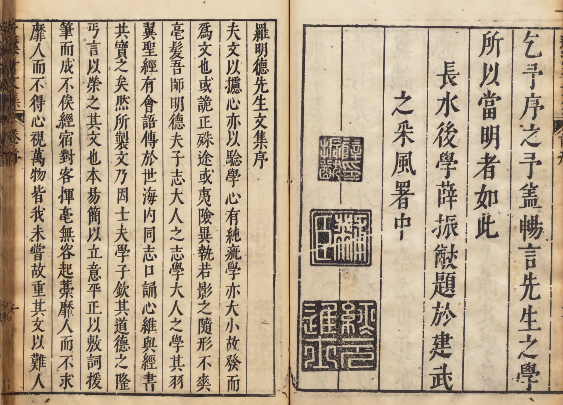 乞予序之予盖暢言先生之學
所以當明者如此
長水後學薛振猷題於建武
之采風署中
羅明德先生文集序
夫文以攄心亦以驗學心有純疵學亦大小故發而
爲文也或詭正殊途或夷險異執若影之隨形不爽
亳髮吾師明德夫子志大人之志學大人之學其羽
翼聖經有會語傳於世海内同志口誦心維與經書
共寶之矣然所製文乃因士夫學子欽其道德之隆
丐言以榮之其文也本易簡以立意平正以敷詞援
筆而成不俟經宿對客揮亳無吝起藁靡人而不求
靡人而不得心視萬物皆我未嘗故重其文以難人